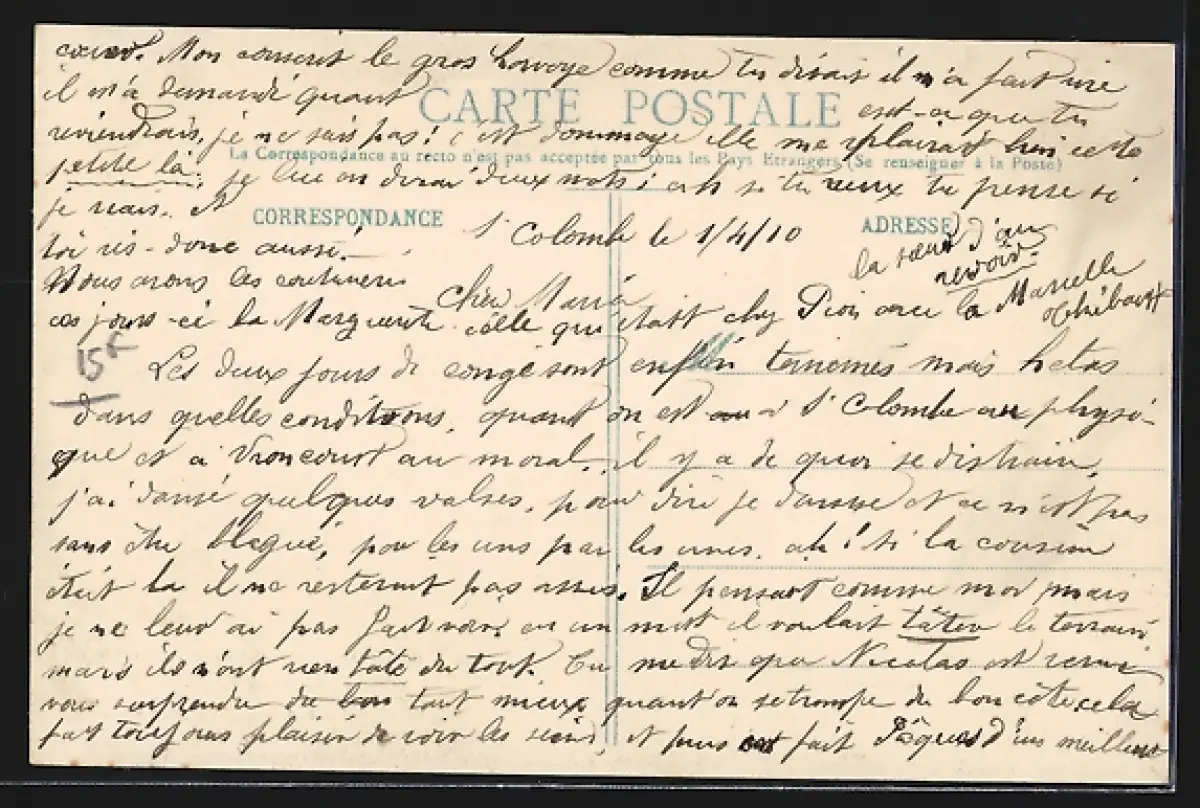 cœur. Mon cousin le gros Lavoye comme tu disais il m'a fait rire
il m'a demandé quant est-ce que tu
CARTE POSTALE
reviendrais, je ne sais pas! c'est dommage elle me plairait bien cette
La Correspondance au recto n'est pas acceptée par tous les Pays Etrangers (Se renseigner à la Poste)
petite là. je lui en dirai deux mots; ah si tu veux tu pense si
je riais. Et
CORRESPONDANCE
ADRESSE
toi ris-donc aussi.
Nous avons les couturières
ces jours-ci la Marguerite celle qui était chez Pion avec la Marcelle Thibault
la sœur d'au revoir.
St Colombe le 1/4/10
Chère Maria,
15F
Les deux jours de congé sont enfin terninés mais hélas
dans quelles conditions, quant on est à St Colombe au physi-
que et à Vroncourt au moral, il y a de quoi se distraire,
j'ai dansé quelques valses, pour dire je dansse et ce n'est pas
sans être blagué, par les uns par les unes. ah! si la cousine
était la il ne resterait pas assis. Il pensait comme moi mais
je ne leur ai pas fait voir, en un mot il voulait tâter le terrain
mais ils n'ont rien tâté du tout. Tu me dis que Nicolas est venu
vous surprendre du bon tout mieux quant on se trompe du bon côté cela
fait toujours plaisir de voir les siens, et puis fait Pâques d'un meilleur